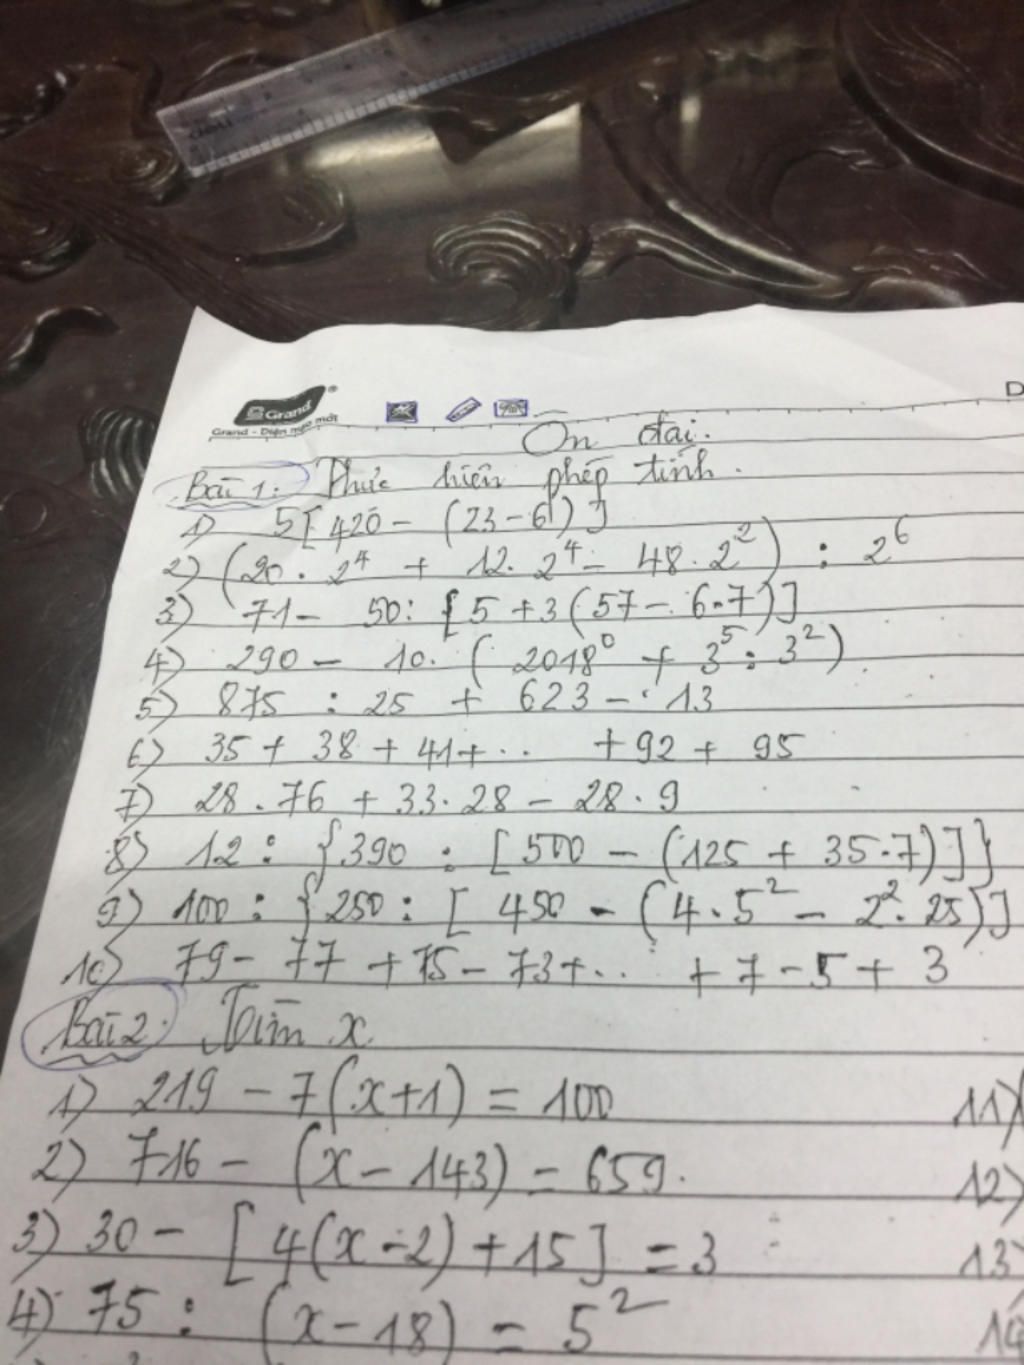 Grand
Grand - Diện mạo mới
Ôn đại.
Bài 1: Thực hiện phép tính.
1) 5[420 - (23 - 6)]
2) (20 . 2⁴ + 12 . 2⁴ - 48 . 2²) : 2⁶
3) 71 - 50 : [5 + 3(57 - 6.7)]
4) 290 - 10 . (2018⁰ + 3⁵ : 3²)
5) 875 : 25 + 623 - 13
6) 35 + 38 + 41 + ... + 92 + 95
7) 28 . 76 + 33 . 28 - 28 . 9
8) 12 : {390 : [500 - (125 + 35.7)]}
9) 100 : {250 : [450 - (4 . 5² - 2² . 25)]
10) 79 - 77 + 75 - 73 + ... + 7 - 5 + 3
Bài 2: Tìm x
1) 219 - 7(x+1) = 100 11)
2) 716 - (x - 143) = 659. 12)
3) 30 - [4(x - 2) + 15] = 3 13)
4) 75 : (x - 18) = 5² 14